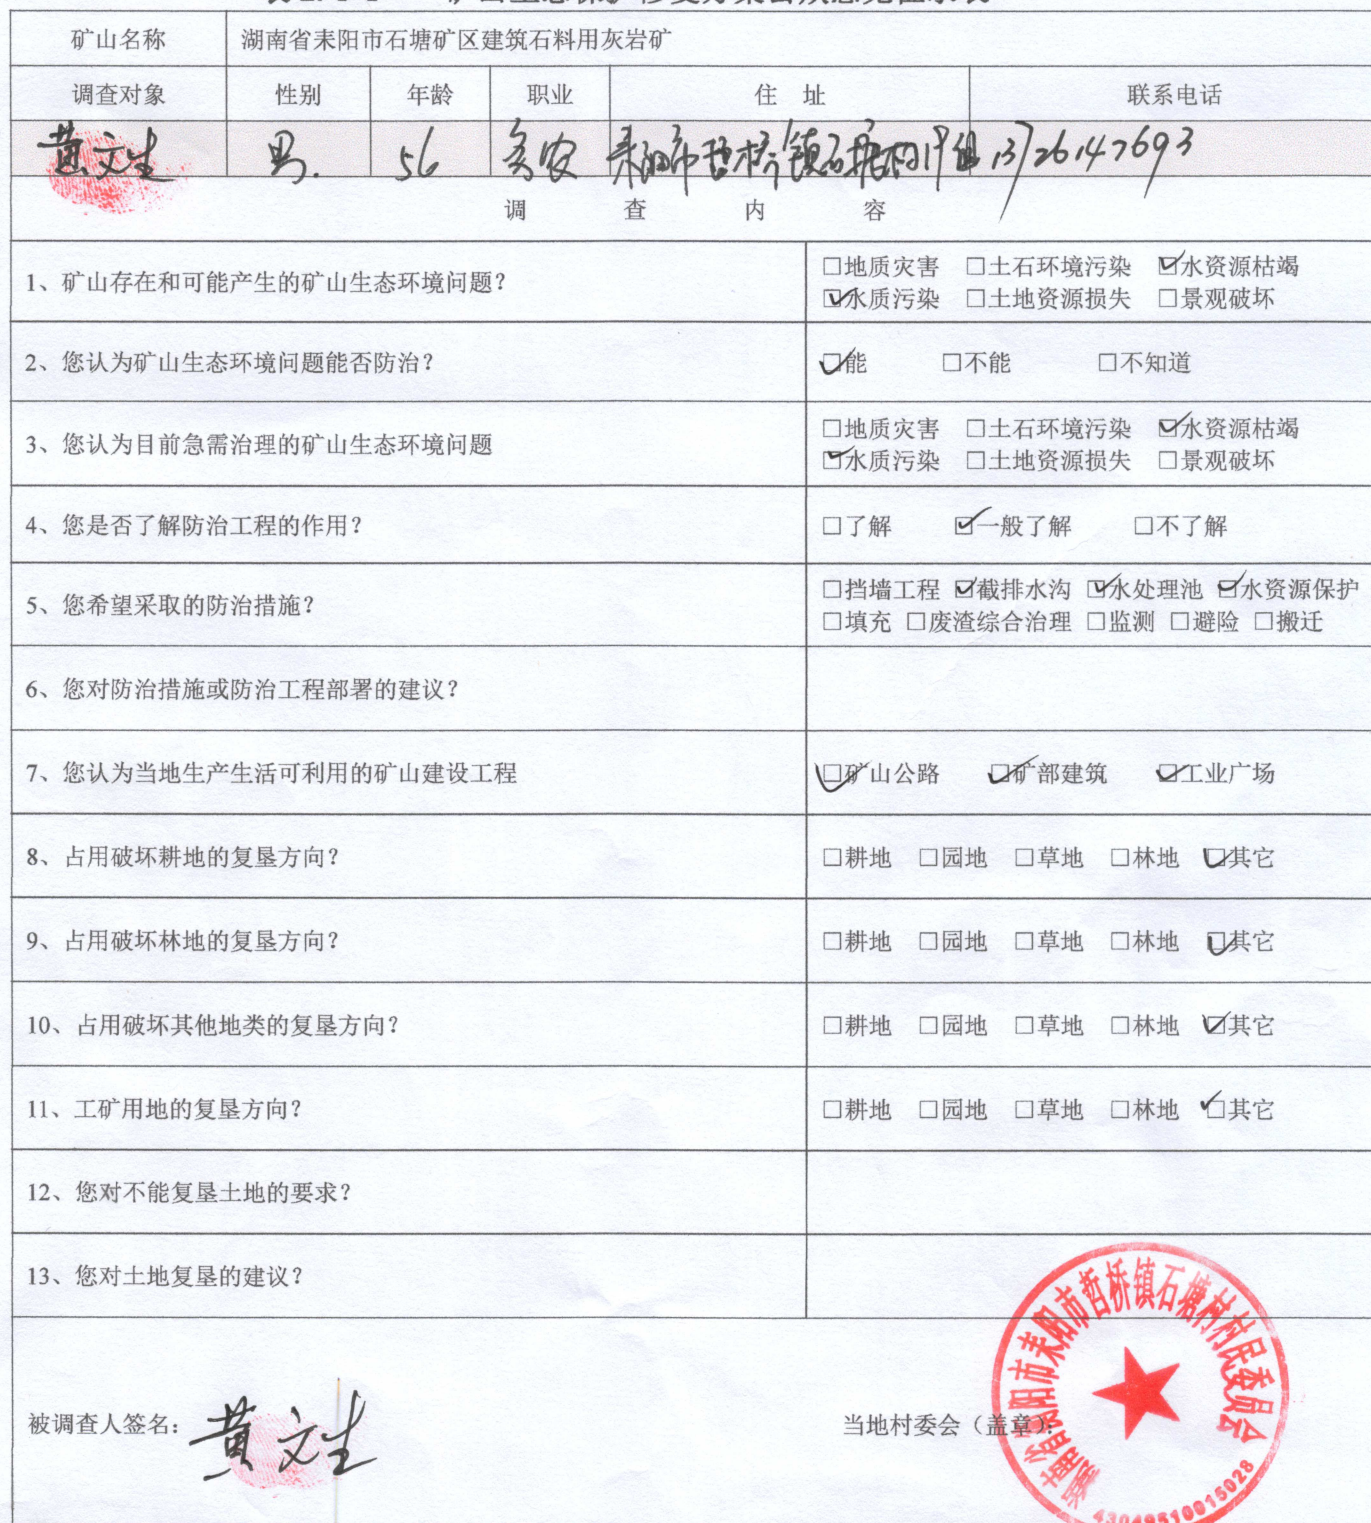 矿山名称 湖南省耒阳市石塘矿区建筑石料用灰岩矿
调查对象 性别 年龄 职业 住 址 联系电话
黄文生 男. 56 务农 耒阳市哲桥镇石塘村19组 13726147693
调 查 内 容
1、矿山存在和可能产生的矿山生态环境问题？
□地质灾害 □土石环境污染 ☑水资源枯竭
☑水质污染 □土地资源损失 □景观破坏
2、您认为矿山生态环境问题能否防治？ ☑能 □不能 □不知道
3、您认为目前急需治理的矿山生态环境问题
□地质灾害 □土石环境污染 ☑水资源枯竭
☑水质污染 □土地资源损失 □景观破坏
4、您是否了解防治工程的作用？ □了解 ☑一般了解 □不了解
5、您希望采取的防治措施？
□挡墙工程 ☑截排水沟 ☑水处理池 ☑水资源保护
□填充 □废渣综合治理 □监测 □避险 □搬迁
6、您对防治措施或防治工程部署的建议？
7、您认为当地生产生活可利用的矿山建设工程 ☑矿山公路 ☑矿部建筑 ☑工业广场
8、占用破坏耕地的复垦方向？ □耕地 □园地 □草地 □林地 ☑其它
9、占用破坏林地的复垦方向？ □耕地 □园地 □草地 □林地 ☑其它
10、占用破坏其他地类的复垦方向？ □耕地 □园地 □草地 □林地 ☑其它
11、工矿用地的复垦方向？ □耕地 □园地 □草地 □林地 ☑其它
12、您对不能复垦土地的要求？
13、您对土地复垦的建议？
被调查人签名： 黄文生 当地村委会（盖章）：
湖南省衡阳市耒阳市哲桥镇石塘村村民委员会
43048510015028